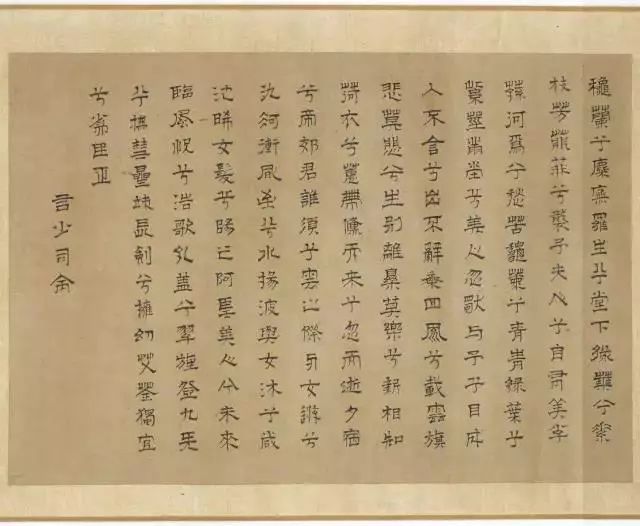 穐蘭兮麋蕪羅生兮堂下綠葉兮素
枝芳菲菲兮襲予夫人兮自有美子
蓀河爲兮愁苦龝蘭兮青青綠葉兮
紫莖滿堂兮美人忽獨与予兮目成
入不言兮出不辭乘回風兮載雲旗
悲莫悲兮生別離樂莫樂兮新相知
荷衣兮蕙帶儵而来兮忽而逝夕宿
兮帝郊君誰須兮雲之際与女游兮
九河衝風至兮水揚波與女沐兮咸
池晞女髮兮陽之阿望美人兮未來
臨風怳兮浩歌孔蓋兮翠旌登九天
兮撫彗星竦長劍兮擁幼艾荃獨宜
兮爲民正
右少司命